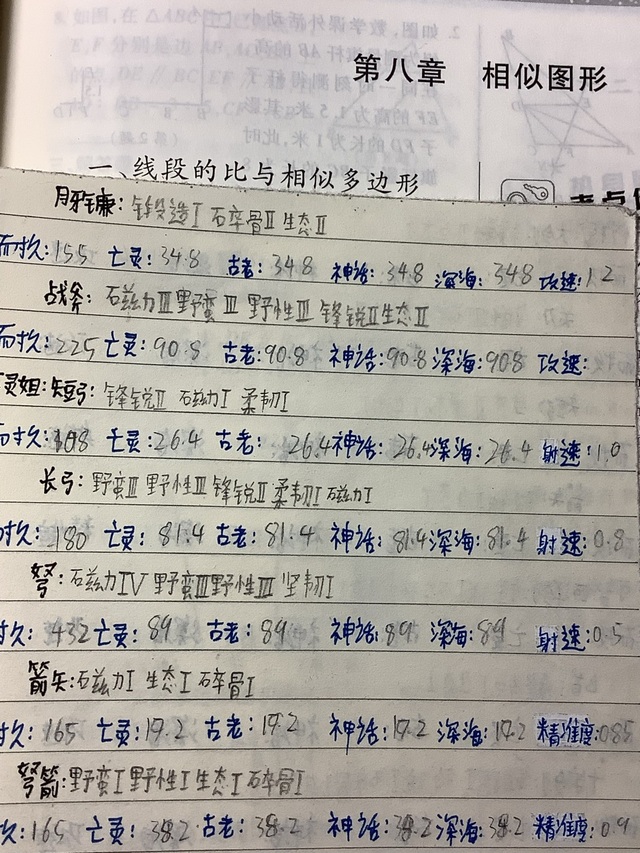 第八章 相似图形
一、线段的比与相似多边形
月牙镰：锻造Ⅰ 碎骨Ⅱ 生态Ⅱ
耐久：155 亡灵：34.8 古老：34.8 神话：34.8 深海：34.8 攻速：1.2
战斧：磁力Ⅲ 野蛮Ⅲ 野性Ⅲ 锋锐Ⅱ 生态Ⅱ
耐久：225 亡灵：90.8 古老：90.8 神话：90.8 深海：90.8 攻速：
灵姐：短弓：锋锐Ⅱ 磁力Ⅰ 柔韧Ⅰ
耐久：108 亡灵：26.4 古老：26.4 神话：26.4 深海：26.4 射速：1.0
长弓：野蛮Ⅱ 野性Ⅱ 锋锐Ⅱ 柔韧Ⅰ 磁力Ⅰ
久：180 亡灵：81.4 古老：81.4 神话：81.4 深海：81.4 射速：0.8
弩：磁力Ⅳ 野蛮Ⅲ 野性Ⅲ 坚韧Ⅰ
久：432 亡灵：89 古老：89 神话：89 深海：89 射速：0.5
箭矢：磁力Ⅰ 生态Ⅰ 碎骨Ⅰ
久：165 亡灵：19.2 古老：19.2 神话：19.2 深海：19.2 精准度：0.85
弩箭：野蛮Ⅰ 野性Ⅰ 生态Ⅰ 碎骨Ⅰ
久：165 亡灵：38.2 古老：38.2 神话：38.2 深海：38.2 精准度：0.9